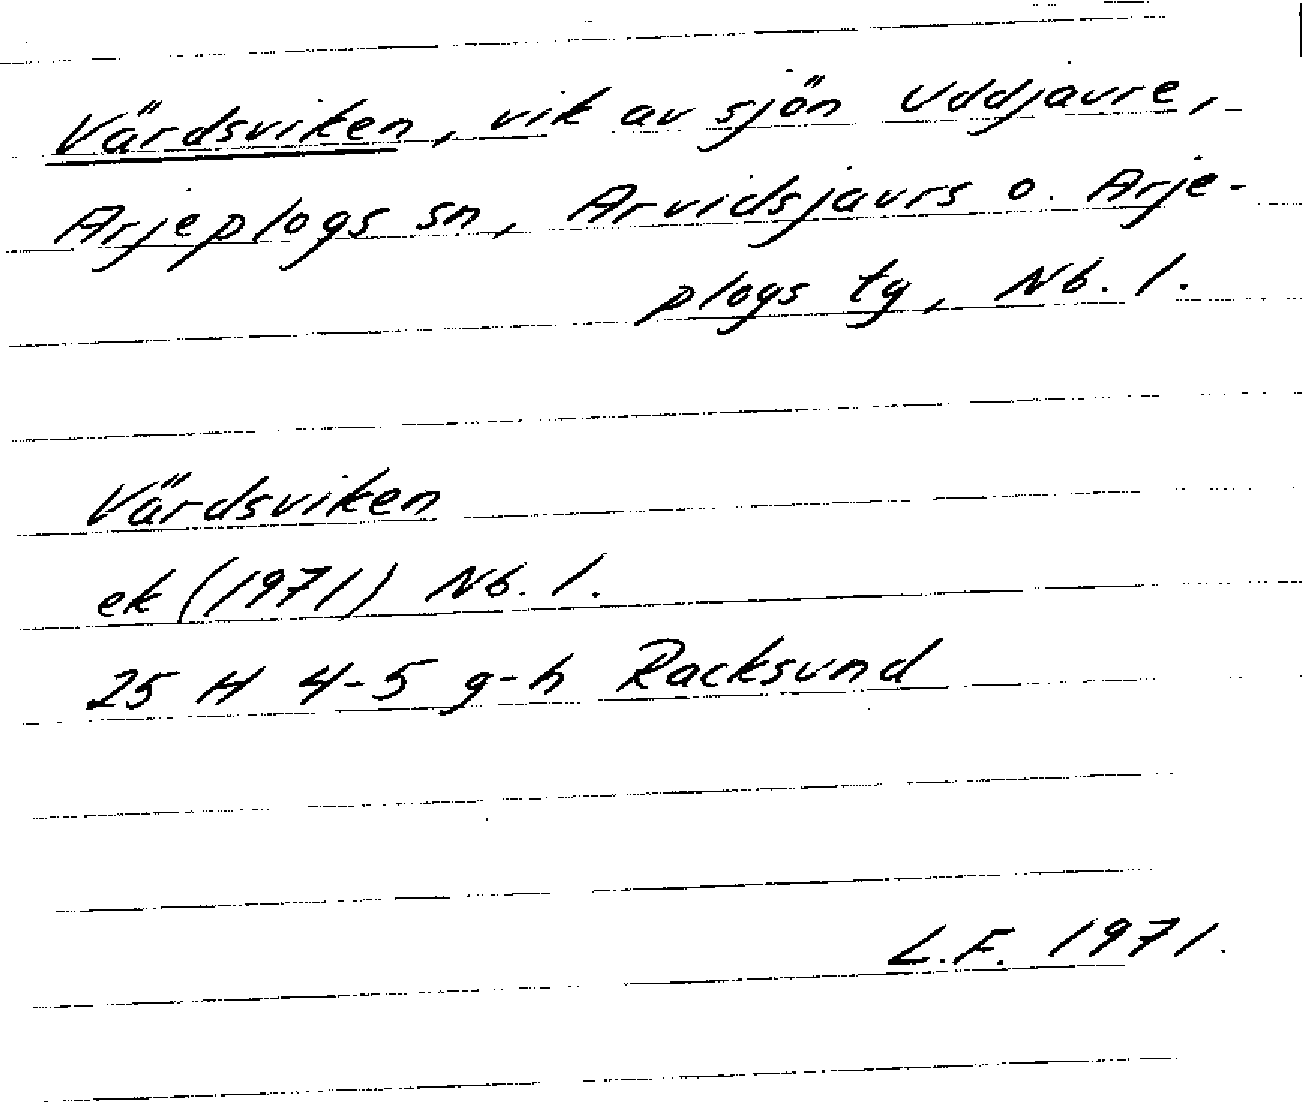 Värdsviken, vik av sjön Uddjaure,
Arjeplogs sn, Arvidsjaurs o. Arje-
plogs tg, Nb. l.
Värdsviken
ek (1971) Nb. l.
25 H 4-5 g-h Racksund
L.F. 1971.